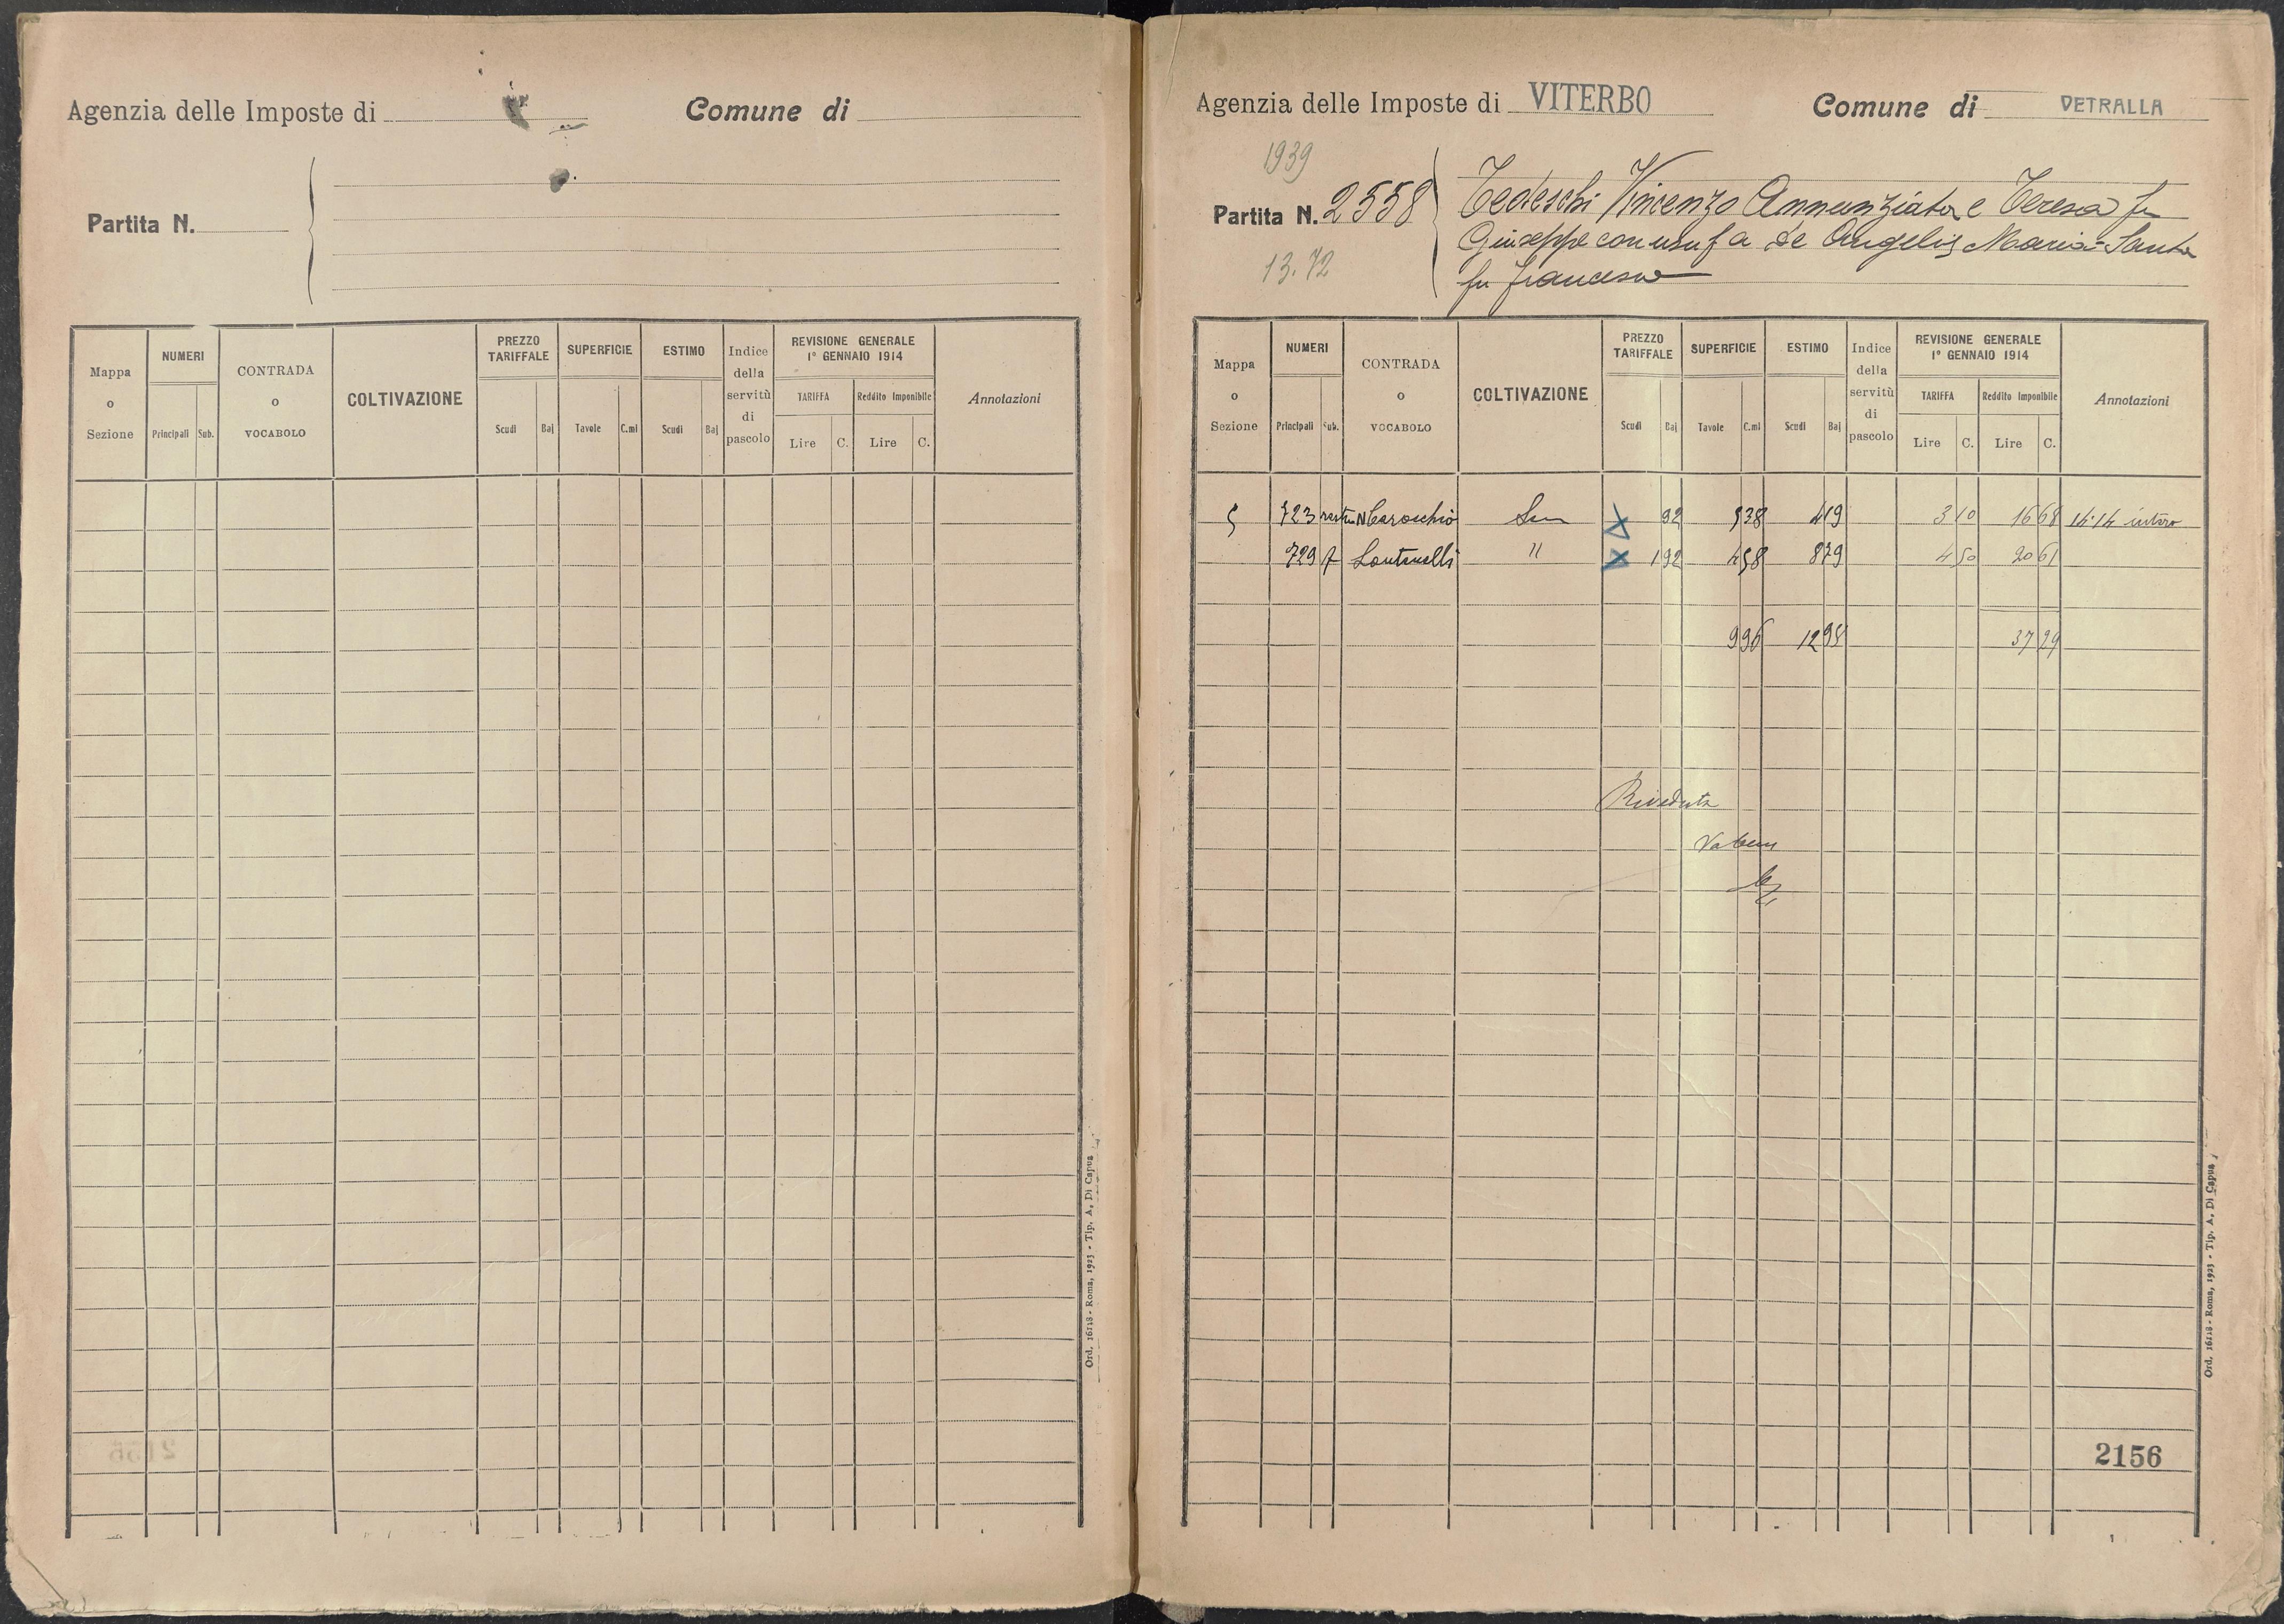 Agenzia delle Imposte di
Comune di
Partita N.
Mappa o Sezione
NUMERI
Principali Sub.
CONTRADA o VOCABOLO
COLTIVAZIONE
PREZZO TARIFFALE
Scudi Baj
SUPERFICIE
Tavole C.mi
ESTIMO
Scudi Baj
Indice della servitù di pascolo
REVISIONE GENERALE 1° GENNAIO 1914
TARIFFA
Lire C.
Reddito Imponibile
Lire C.
Annotazioni
Ord. 16118 - Roma, 1923 - Tip. A. Di Capua
Agenzia delle Imposte di VITERBO
Comune di VETRALLA
1939
Partita N. 2558
13.72
Tedeschi Vincenzo Annunziata e Teresa fu
Giuseppe con usuf a De Angelis Maria=Santa
fu Francesco
Mappa o Sezione
NUMERI
Principali Sub.
CONTRADA o VOCABOLO
COLTIVAZIONE
PREZZO TARIFFALE
Scudi Baj
SUPERFICIE
Tavole C.mi
ESTIMO
Scudi Baj
Indice della servitù di pascolo
REVISIONE GENERALE 1° GENNAIO 1914
TARIFFA
Lire C.
Reddito Imponibile
Lire C.
Annotazioni
5 723 Sem 92 538 419 3 10 16 68 intero
729 " 1 92 458 8 79 4 50 20 61
996 12 98 37 29
Riveduta
2156
Ord. 16118 - Roma, 1923 - Tip. A. Di Capua